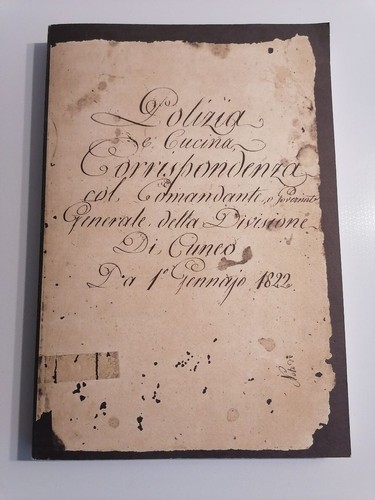 Polizia
e Cucina
Corrispondenza
col Comandante, e Governat.
Generale della Divisione
Di Cuneo
Da 1.º Gennajo 1822.